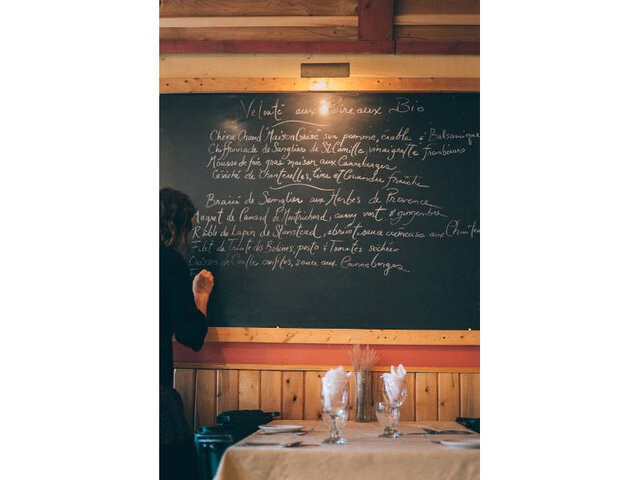 Velouté aux Poireaux Bio
Chèvre Chaud "Maison Grisé" sur pomme, érable & Balsamique
Chiffonnade de Sanglier de St-Camille, vinaigrette Framboises
Mousse de foie gras maison aux Canneberges
Ceviché de Chanterelles, lime et Coriandre fraîche
Braisé de Sanglier aux Herbes de Provence
Magret de Canard de Montrichard, curry vert & gingembre
Râble de Lapin de Stanstead, abricot, sauce crémeuse aux
Filet de Truite des Bobines, pesto & Tomates séchées
Cuisses de Caille confites, sauce aux Canneberges